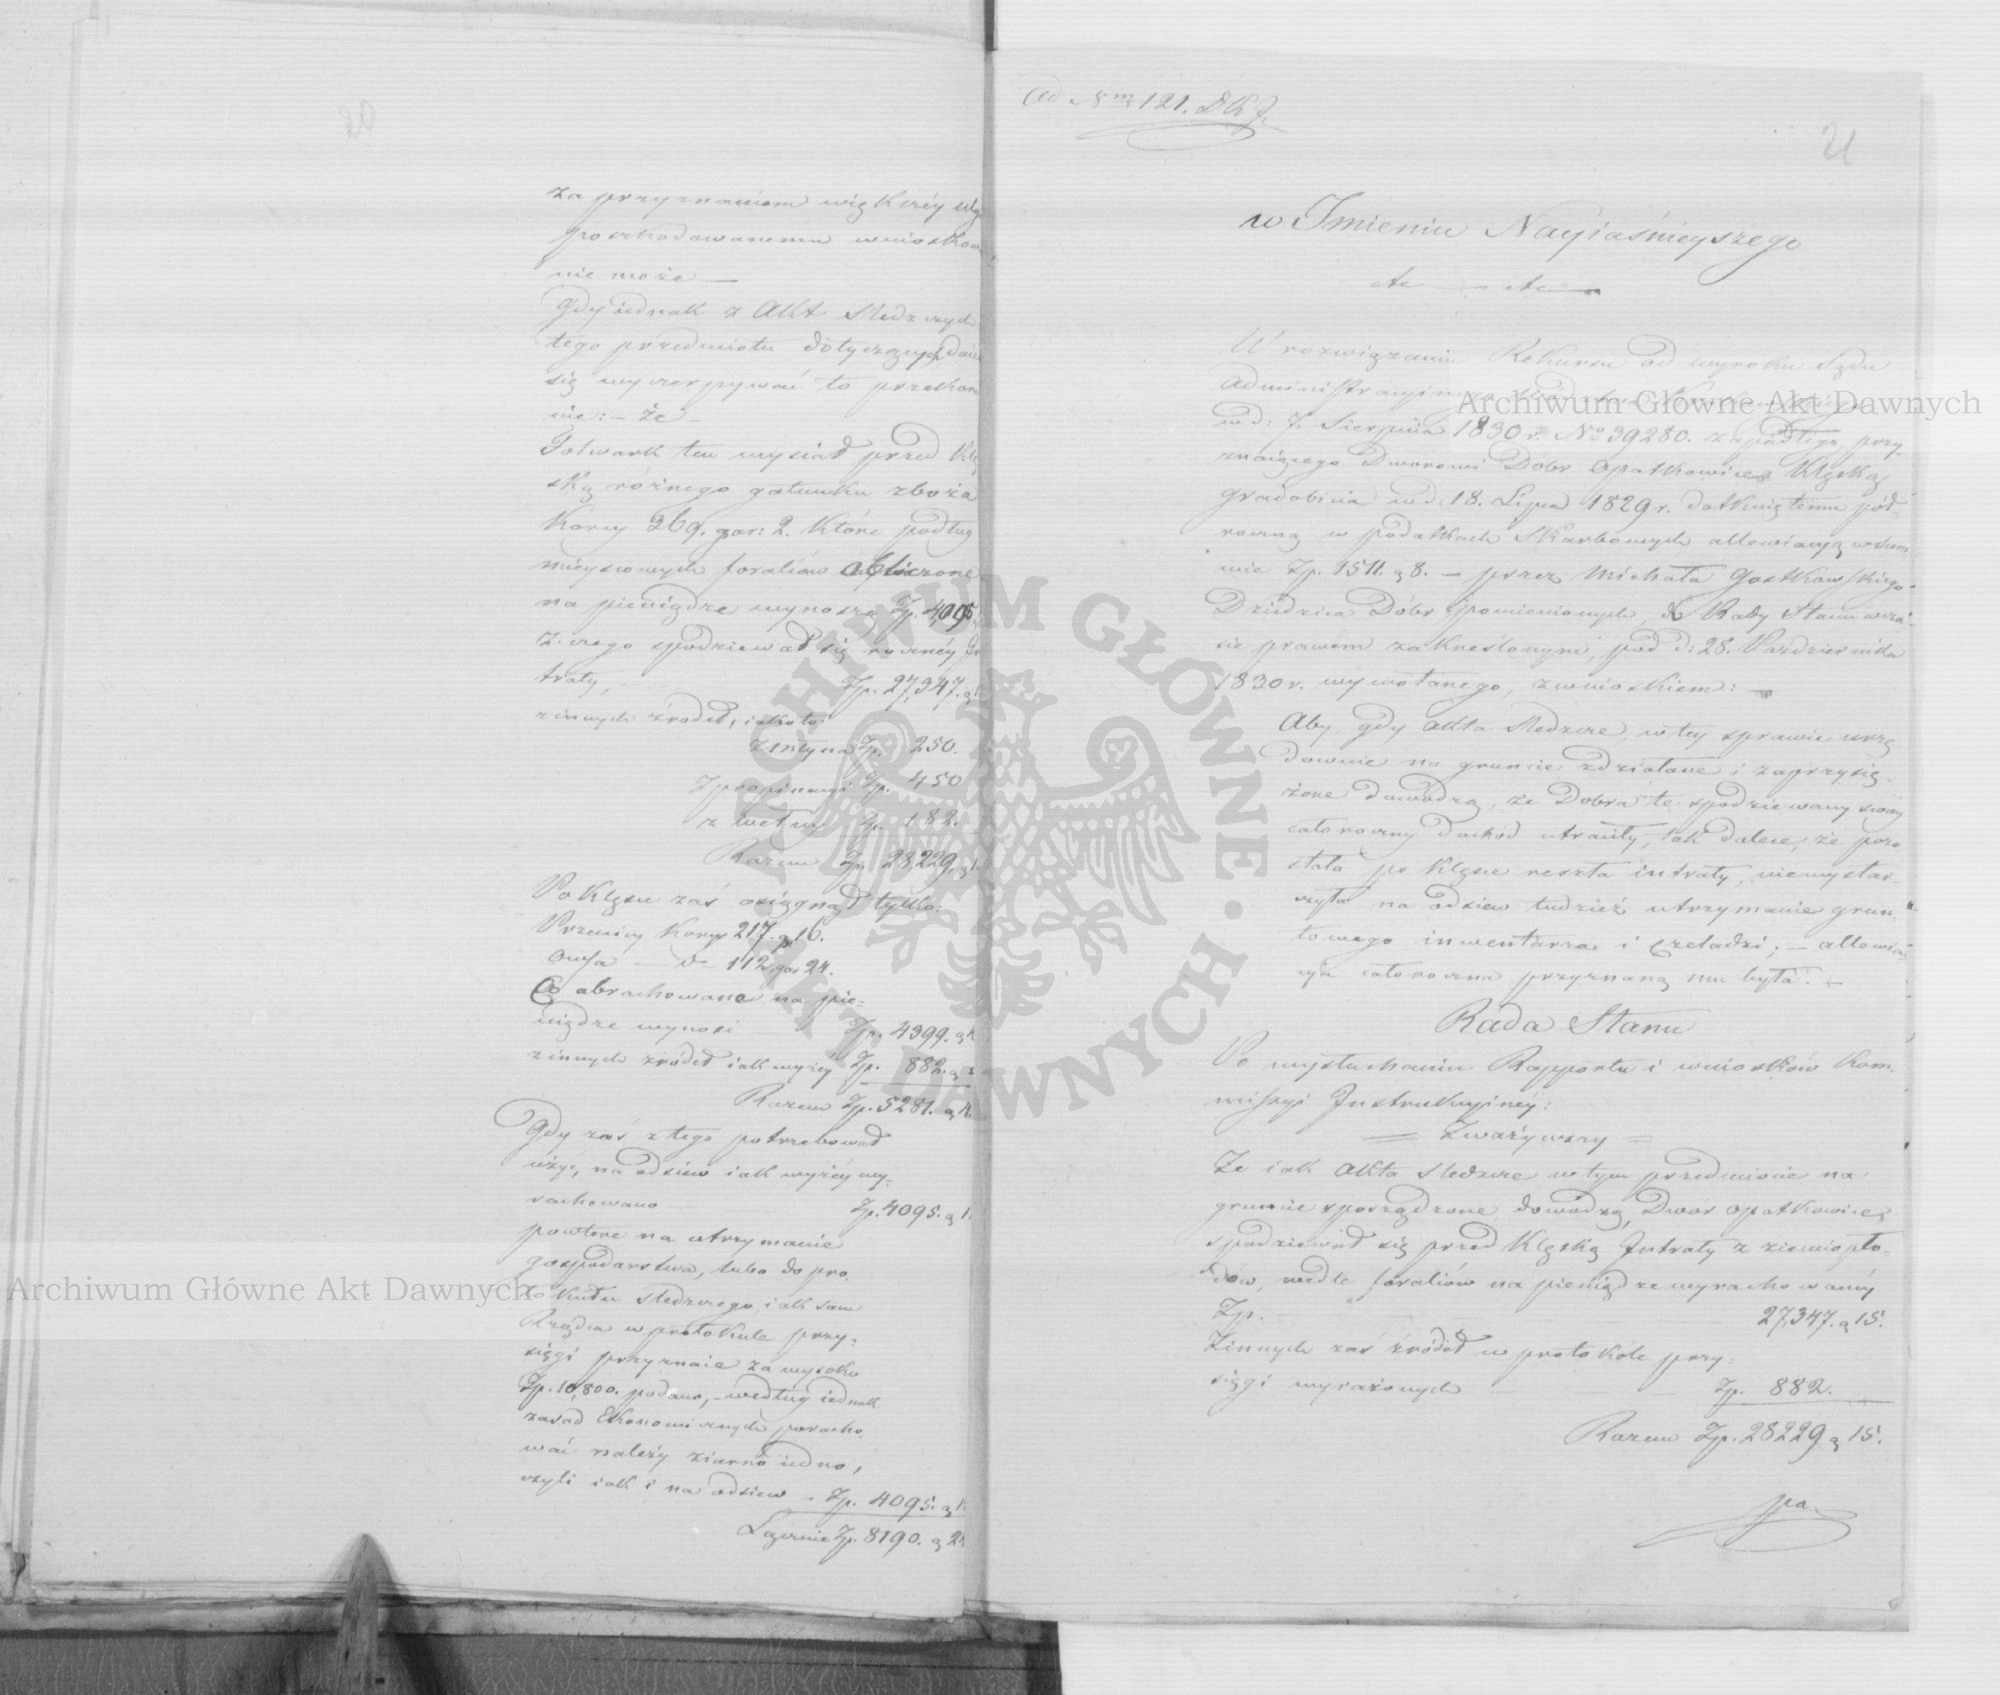 za przyznaniem większéy ulg
poszkodowanemu wnioskow
nie może —
Gdy iednak z Akt Sledczych
tego przedmiotu dotyczących daie
się wyczerpywać to przekona
nie: — że —
Folwark ten wysiał przed Klę
ską różnego gatunku zboża
Korcy 269. gar: 2. Które podług
mieyscowych foraliów obliczone
na pieniądze wynoszą Zp. 4,095
z czego spodziewał się roczney In
traty, — Zp. 27,347. g
z innych źródeł, iakoto:
Zp. 250.
Z propinacyi Zp. 450
z wełny Zp. 182.
Razem Zp. 28,229. g
Po Klęsce zaś osiągnął tylko:
Pszenicy Korcy 217. g 16.
Owsa — d — 112 gar 24.
Co abrachowane na pie=
niądze wynosi Zp. 4399. g
z innych źródeł iak wyżéy Zp. 882. g
Razem Zp. 5281. g
Gdy zaś z tego potrzebował
użyć, na odsiew iak wyżéy wy-
rachowano Zp. 4095. g 1
powtóre na utrzymanie
gospodarstwa, lubo do pro.
tokułu Sledczego, iak sam
Rządca w protokule przy=
sięgi przyznaie za wysoko
Zp. 10,800. podano, — według iednak
zasad Ekonomicznych poracho.
wać należy ziarno iedno,
czyli iak i na odsiew — Zp. 4095. g
Łącznie Zp. 8190. g 2
Ad Nm 121. D.K.J.
21
w Imieniu Nayiaśnieyszego
etc — etc —
W rozwiązaniu Rekursu od wyroku Sądu
Administracyinego
w d: 7. Sierpnia 1830 r. No 39280. zapadłego, przy-
znaiącego Dworowi Dóbr Opatkowice Klęską
gradobicia w d: 18. Lipca 1829 r. dotkniętemu pół-
roczną w podatkach Skarbowych allewiacyą w sum
mie Zp. 1511. g 8. — przez Michała Gostkowskiego
Dziedzica Dóbr pomienionych, do Rady Stanu w cza-
sie prawem zakreślonym, pod d: 28. Października
1830 r. wywołanego, z wnioskiem: —
Aby, gdy Akta Sledcze, w tey sprawie urzę
downie na gruncie zdziałane i zaprzysię-
żone dowodzą, że Dobra te spodziewany swoy
całoroczny dochód utraciły, tak dalece, że pozo
stała po Klęsce reszta intraty, niewystar-
czyła na odsiew tudzież utrzymanie grun-
towego inwentarza i czeladzi; — allewia-
cyia całoroczna przyznaną mu była. —
Rada Stanu
Po wysłuchaniu Rapportu i wniosków Kom-
missyi Instrukcyinéy:
= Zważywszy =
Że iak Akta Sledcze w tym przedmiocie na
gruncie sporządzone dowodzą, Dwór Opatkowice
spodziewał się przed Klęską Intraty z ziemiopło-
dów, wedle foraliów na pieniądze wyrachowanéy
Zp. — 27,347. g 15.
Z innych zaś źródeł w protokóle przy=
sięgi wyrażonych — Zp. 882.
Razem Zp. 28229 g 15.
po
Archiwum Główne Akt Dawnych
Archiwum Główne Akt Dawnych
ARCHIWUM GŁÓWNE · AKT DAWNYCH ·